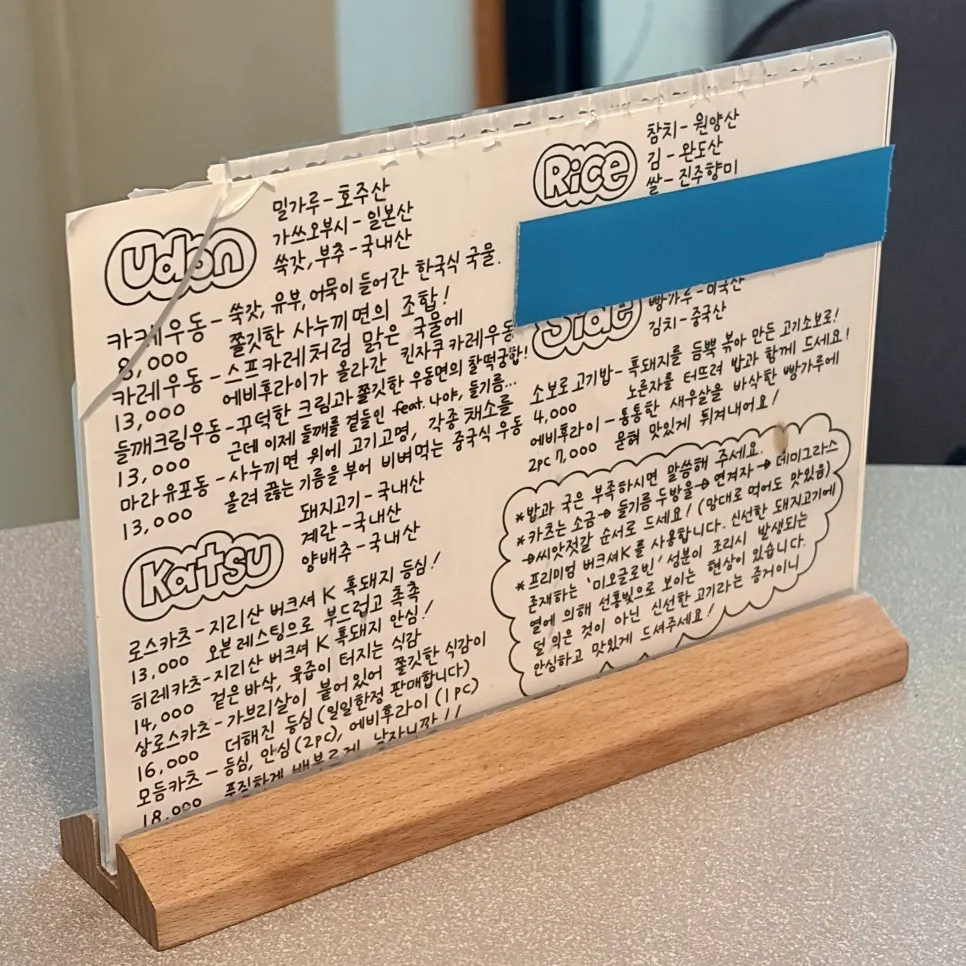 Udon
밀가루 - 호주산
가쓰오부시 - 일본산
쑥갓, 부추 - 국내산
카케우동 - 쑥갓, 유부, 어묵이 들어간 한국식 국물.
8,000 쫄깃한 사누끼면의 조합!
카레우동 - 스프카레처럼 맑은 국물에
13,000 에비후라이가 올라간 킨자쿠카레우동
들깨크림우동 - 꾸덕한 크림과 쫄깃한 우동면의 찰떡궁합!
13,000 근데 이제 들깨를 곁들인 feat. 나야, 들기름...
마라유포동 - 사누끼면 위에 고기고명, 각종 채소를
13,000 올려 끓는 기름을 부어 비벼먹는 중국식 우동
Katsu
돼지고기 - 국내산
계란 - 국내산
양배추 - 국내산
로스카츠 - 지리산 버크셔 K 흑돼지 등심!
13,000 오븐레스팅으로 부드럽고 촉촉
히레카츠 - 지리산 버크셔 K 흑돼지 안심!
14,000 겉은 바삭, 육즙이 터지는 식감
상로스카츠 - 가브리살이 붙어있어 쫄깃한 식감이
16,000 더해진 등심 (일일한정 판매합니다)
모듬카츠 - 등심, 안심(2pc), 에비후라이(1pc)
18,000 푸짐하게 배부르게
Rice
참치 - 원양산
김 - 완도산
쌀 - 진주향미
Side
빵가루 - 미국산
김치 - 중국산
소보로고기밥 - 흑돼지를 듬뿍 볶아 만든 고기소보로!
4,000 노른자를 터뜨려 밥과 함께 드세요!
에비후라이 - 통통한 새우살을 바삭한 빵가루에
2pc 7,000 묻혀 맛있게 튀겨내어요!
*밥과 국은 부족하시면 말씀해 주세요.
*카츠는 소금 → 들기름 두방울 → 연겨자 → 데미그라스
→ 씨앗젓갈 순서로 드세요! (맘대로 먹어도 맛있음)
*프리미엄 버크셔K를 사용합니다. 신선한 돼지고기에
존재하는 '미오글로빈' 성분이 조리시 발생되는
열에 의해 선홍빛으로 보이는 현상이 있습니다.
덜 익은 것이 아닌 신선한 고기라는 증거이니
안심하고 맛있게 드셔주세요!